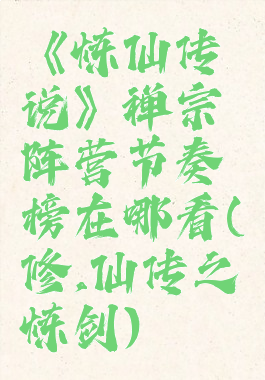 《炼仙传
说》禅宗
阵营节奏
榜在哪看(
修,仙传之
炼剑)